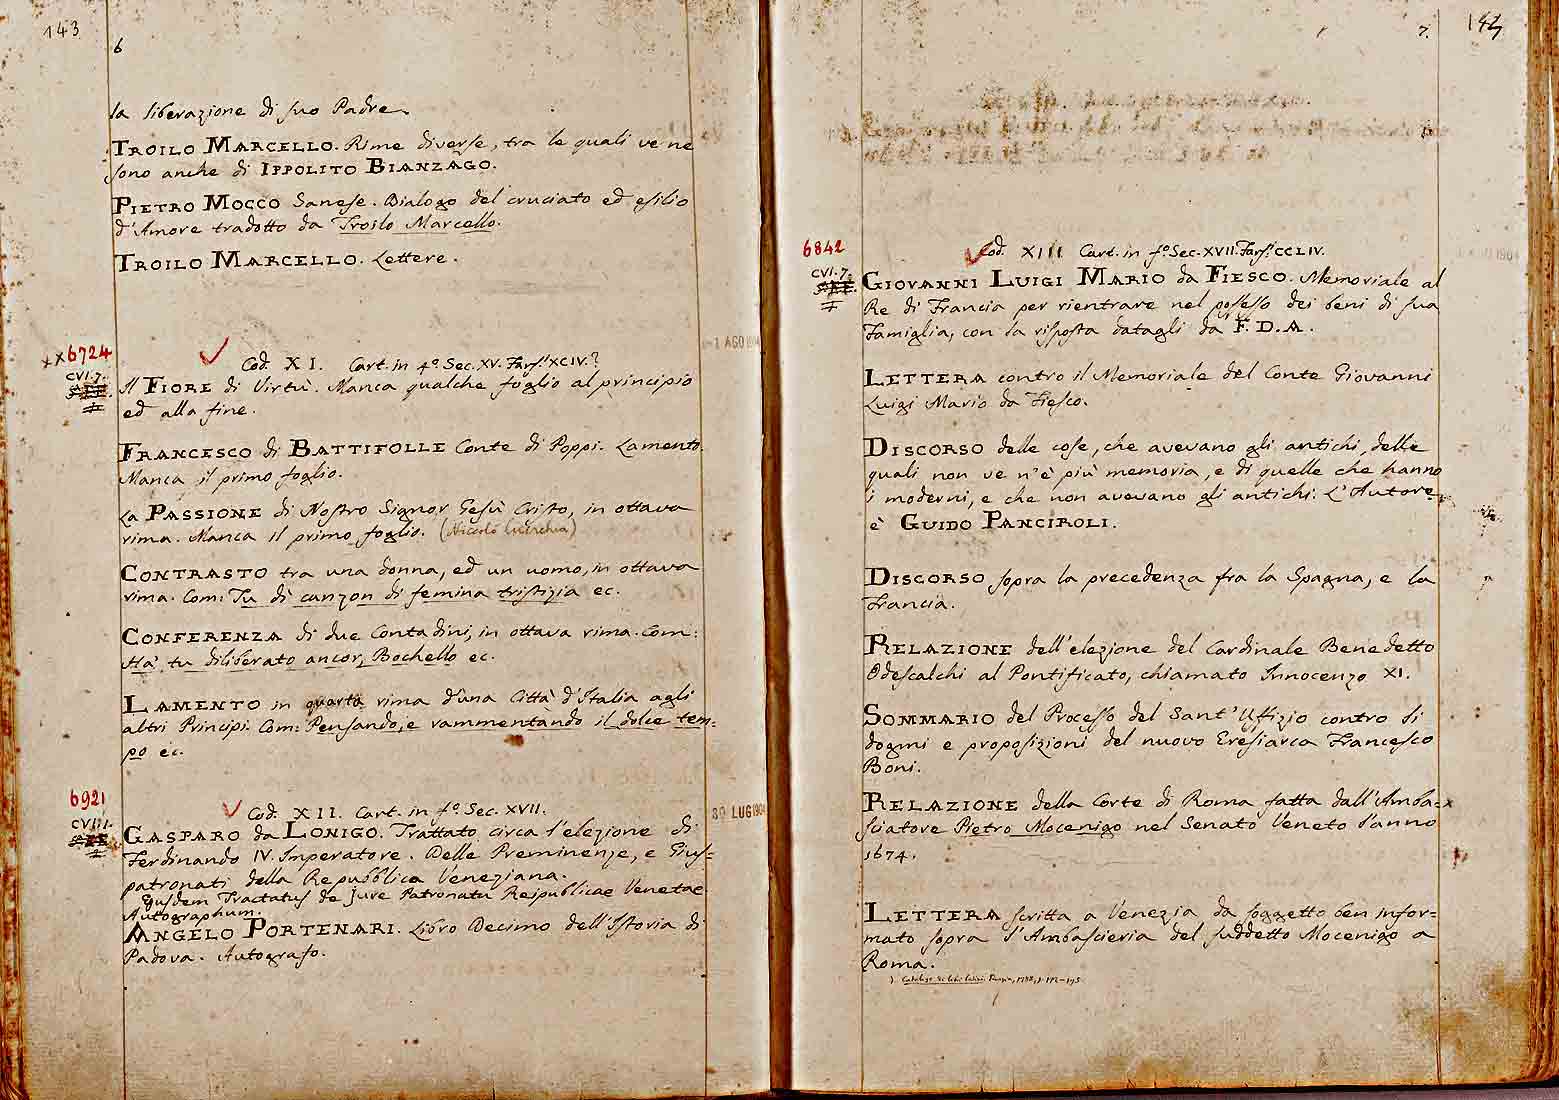 143
6
la liberazione di suo Padre
TROILO MARCELLO. Rime diverse, tra le quali ve ne
sono anche di IPPOLITO BIANZAGO.
PIETRO MOCCO Sanese. Dialogo del cruciato ed esilio
d'Amore tradotto da Troilo Marcello.
TROILO MARCELLO. Lettere.
xx6724
CVI.7.
1 AGO 1904
Cod. XI. Cart. in 4º. Sec. XV. Fars.¹ XCIV.
Il FIORE di Virtù. Manca qualche foglio al principio
ed alla fine.
FRANCESCO di BATTIFOLLE Conte di Poppi. Lamento.
Manca il primo foglio.
La PASSIONE di Nostro Signor Gesù Cristo, in ottava
rima. Manca il primo foglio. (Nicolò Cicerchia)
CONTRASTO tra una donna, ed un uomo, in ottava
rima. Com: Tu dì canzon di femina tristizia ec.
CONFERENZA di due Contadini, in ottava rima. Com:
Ha' tu diliberato ancor, Bochello ec.
LAMENTO in quarta rima d'una Città d'Italia agli
altri Principi. Com: Pensando, e rammentando il dolce tem=
po ec.
6921
CVII.1.
30 LUG 1904
Cod. XII. Cart. in fº. Sec. XVII.
GASPARO da LONIGO. Trattato circa l'elezione di
Ferdinando IV. Imperatore. Delle Preminenze, e Gius=
patronati della Repubblica Veneziana.
Ejusdem Tractatus de jure Patronatu Reipublicae Venetae
Autographum.
ANGELO PORTENARI. Libro Decimo dell'Istoria di
Padova. Autografo.
7.
6842
CVI.7.
Cod. XIII Cart. in fº. Sec. XVII. Fars.¹ CCLIV.
GIOVANNI LUIGI MARIO da FIESCO. Memoriale al
Re di Francia per rientrare nel possesso dei beni di sua
Famiglia, con la risposta datagli da F. D. A.
LETTERA contro il Memoriale del Conte Giovanni
Luigi Mario da Fiesco.
DISCORSO delle cose, che avevano gli antichi, delle
quali non ve n'è più memoria, e di quelle che hanno
i moderni, e che non avevano gli antichi. L'Autore
è GUIDO PANCIROLI.
DISCORSO sopra la precedenza fra la Spagna, e la
Francia.
RELAZIONE dell'elezione del Cardinale Benedetto
Odescalchi al Pontificato, chiamato Innocenzo XI.
SOMMARIO del Processo del Sant'Uffizio contro li
dogmi e proposizioni del nuovo Eresiarca Francesco
Boni.
RELAZIONE della Corte di Roma fatta dall'Amba=
sciatore Pietro Mocenigo nel Senato Veneto l'anno
1674.
LETTERA scritta a Venezia da soggetto ben infor=
mato sopra l'Ambascieria del suddetto Mocenigo a
Roma.